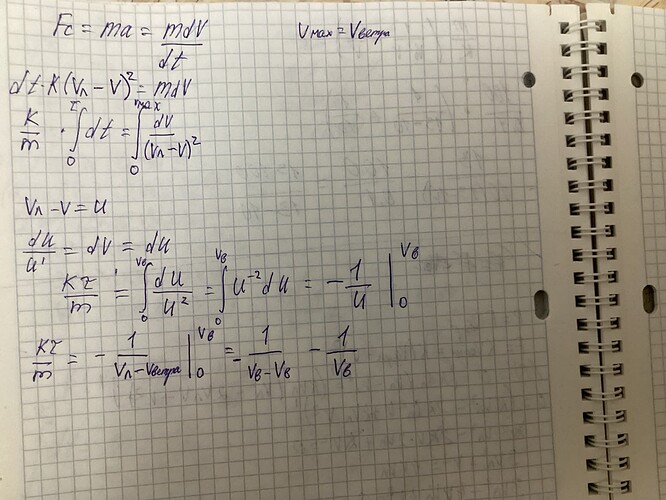 Fc = ma = mdV/dt
Vmax = Vветра
dt·K(Vл - V)² = mdV
K/m · ∫₀^τ dt = ∫₀^Vmax dV/(Vл - V)²
Vл - V = u
du/u' = dV = du
Kτ/m = ∫₀^Vв du/u² = ∫₀^Vв u⁻² du = -1/u |₀^Vв
Kτ/m = - 1/(Vл - Vветра) |₀^Vв = - 1/(Vв - Vв) - 1/Vв